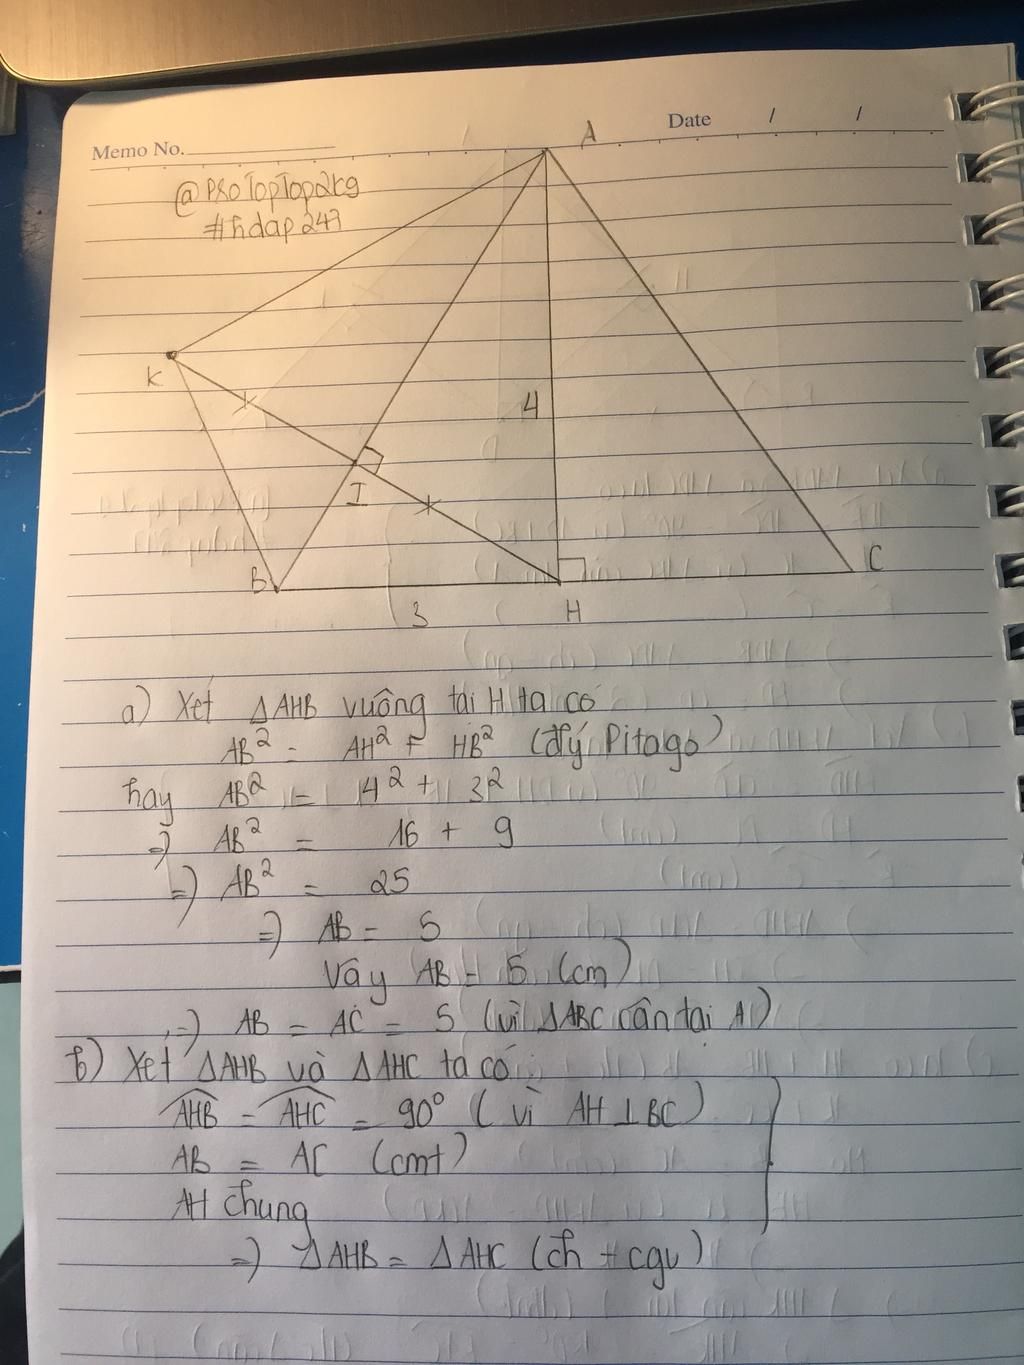 Memo No.
Date / /
@PROTopTop2k9
#hdap247
A
K
4
I
B
C
3
H
a) Xét ΔAHB vuông tại H ta có
AB² = AH² + HB² (đ.lý Pitago)
hay AB² = 4² + 3²
=) AB² = 16 + 9
=) AB² = 25
=) AB = 5
Vậy AB = 5 (cm)
=) AB = AC = 5 (vì ΔABC cân tại A)
b) Xét ΔAHB và ΔAHC ta có
AHB = AHC = 90° (vì AH ⊥ BC)
AB = AC (cmt)
AH chung
=) ΔAHB = ΔAHC (ch + cgv)